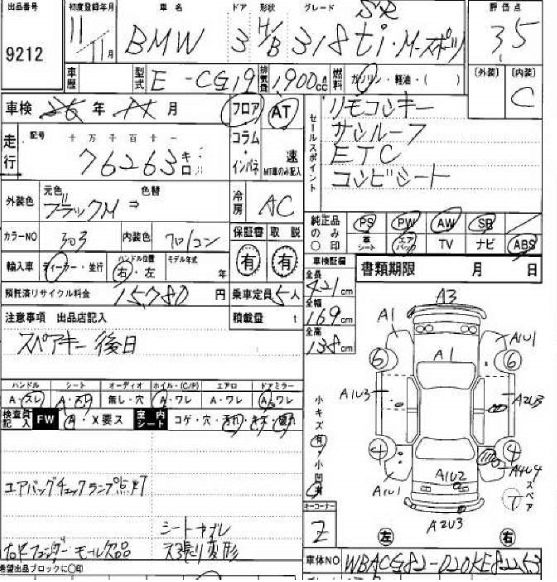 出品番号 初度登録年月 車名 ドア 形状 グレード 評価点
9212 11/11 BMW 3 H/B 318ti M-スポーツ SR 3.5
車歴 型式 E-CG19 排気量 1,900cc 燃料 ガソリン・軽油・( ) [外装] [内装] C
車検 年 月 フロア AT
走行 記号 十万千百十一
76263キロ
コラム・インパネ 速 MT車のみ記入
セールスポイント
リモコンキー
サンルーフ
ETC
コンビシート
外装色 元色 色替
ブラックM ⇒
冷房 AC
カラーNO 303 内装色 クロ/コン
保証書 取説
有 有
純正品のみ○印 PS PW AW SR
車シート エアバッグ TV ナビ ABS
輸入車 ディーラー・並行 ハンドル位置 右・左 モデル年式 年
預託済リサイクル料金 15,780円 乗車定員 5人
車検証幅 全長 421cm
全幅 169cm
全高 138cm
書類期限 月 日
注意事項 出品店記入 積載量 t
スペアキー後日
ハンドル シート オーディオ ホイル・(C/P) エアロ ドアミラー
A・スレ A・スリ 無し・穴 A・ワレ A・ワレ A・ワレ
検査員記入 FW A・X要ス 室内シート コゲ・穴・汚れ・キズ・破れ
エアバッグチェックランプ点灯
シートスレ
右Fフェンダーモール欠品 天張り変形
小キズ有・小凹有
A3
A1 A1U1
6 A1 6
A1U3 A2U3
4 4
A1U2 A4U4
A1U1 スペア
A2U3
コーナーコーナー 2
左 右
希望出品ブロックに○印
車体NO